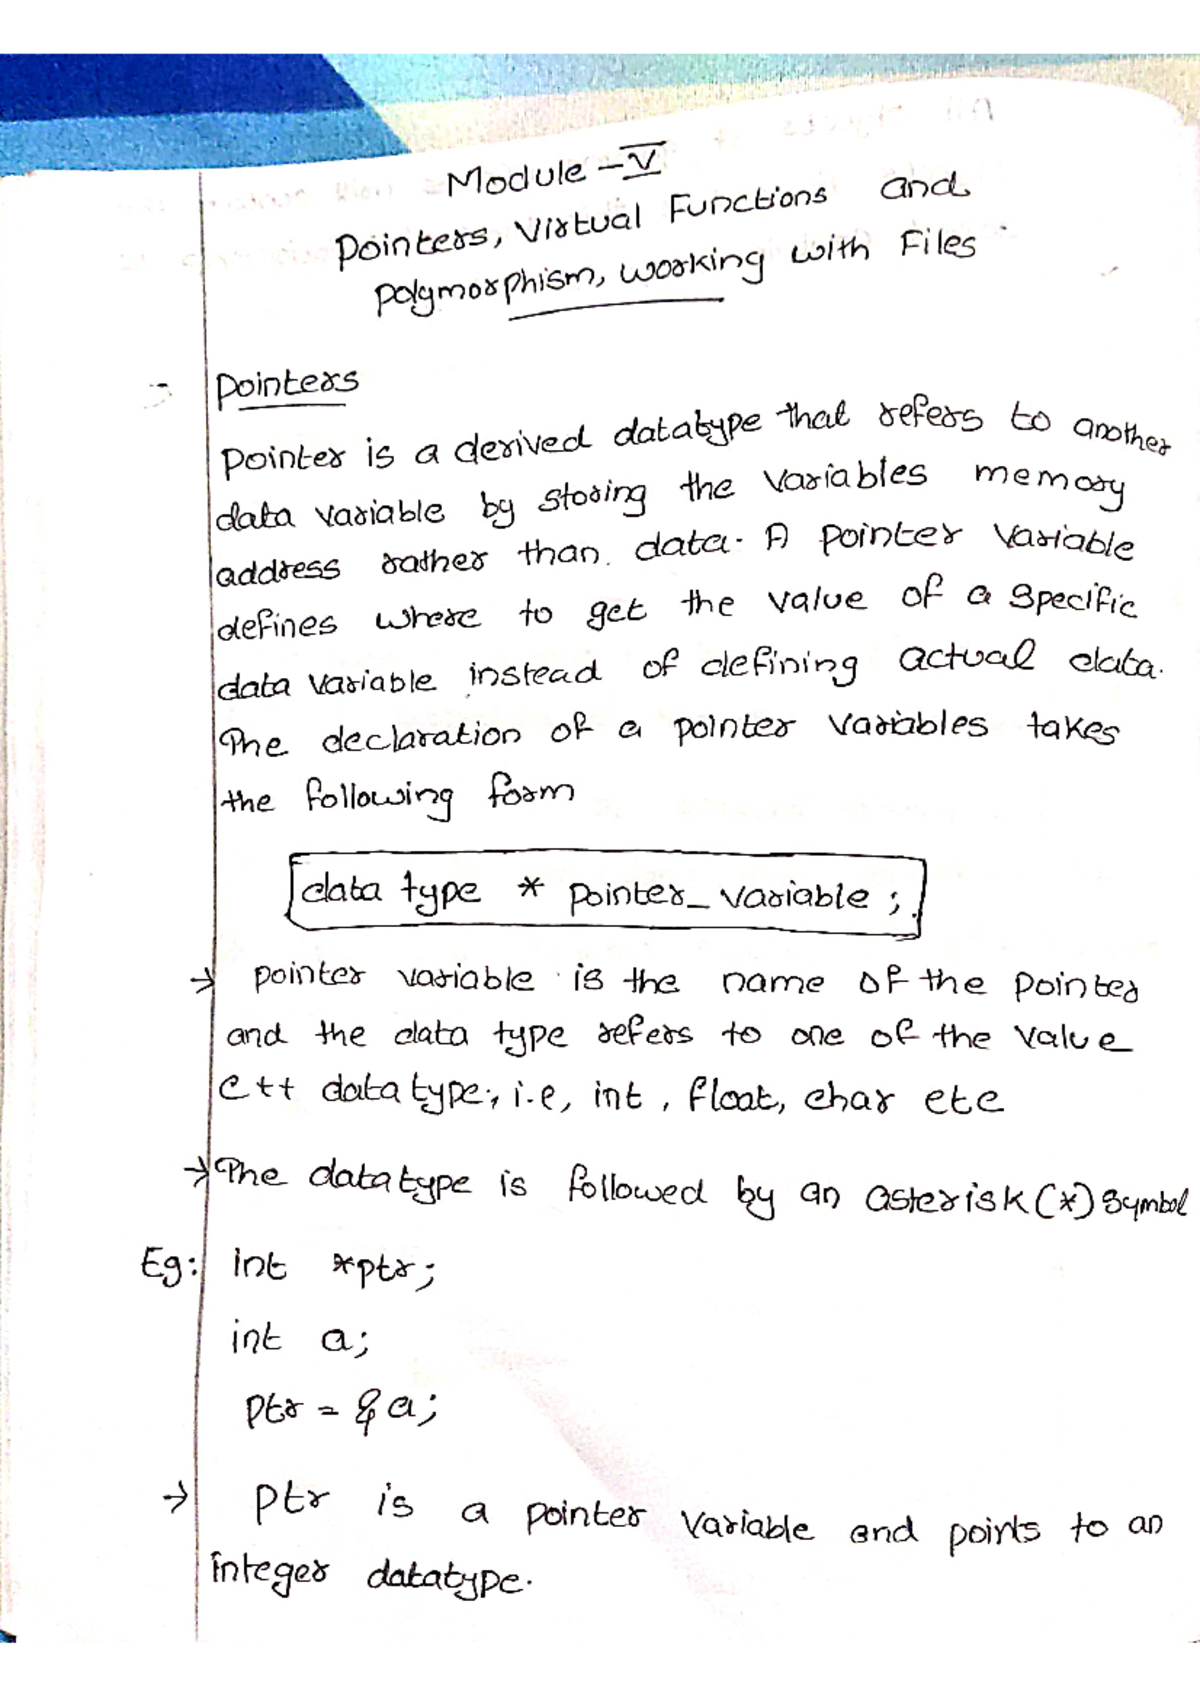 Module - V
Pointers, Virtual Functions and
polymorphism, working with Files
Pointers
Pointer is a derived datatype that refers to another
data variable by storing the variables memory
address rather than data. A pointer variable
defines where to get the value of a specific
data variable instead of defining actual data.
The declaration of a pointer variables takes
the following form
data type * pointer_variable ;
→ pointer variable is the name of the pointer
and the data type refers to one of the value
C++ data type, i.e, int, float, char etc
→ The data type is followed by an asterisk (*) symbol
Eg: int *ptr;
int a;
ptr = &a;
→ ptr is a pointer variable and points to an
integer datatype.